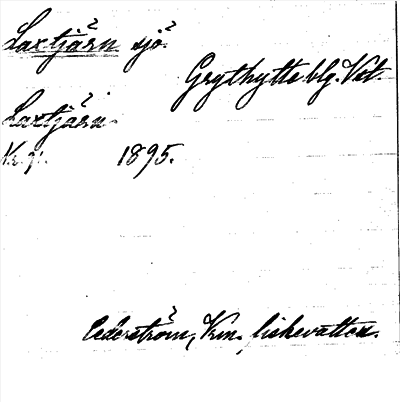 Laxtjärn sjö.
Grythytte blg. Vst.
Laxtjärn
1895.
Cederström, Vrm. fiskevatten.